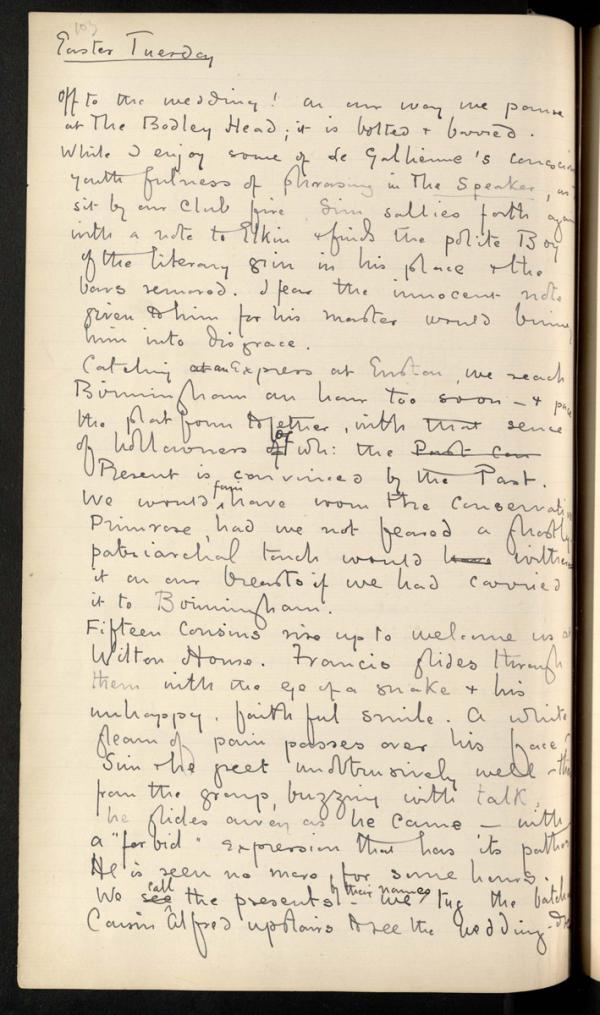 103
Easter Tuesday
Off to the wedding! On our way we pause
at The Bodley Head; it is bolted & barred.
While I enjoy some of le Gallienne's conscious
youthfulness of phrasing in The Speaker, as I
sit by our Club fire Sim sallies forth again
with a note to Elkin & finds the polite Boy
of the literary grin in his place & the
bars removed. I fear the innocent note
given to him for his master would bring
him into disgrace.
Catching at an Express at Euston, we reach
Birmingham an hour too soon - & pace
the platform together, with that sense
of hollowness of wh: the Past can
Present is convinced by the Past.
We would fain have worn the Conservative
Primrose, had we not feared a ghostly
patriarchal touch would have wither
it on our breasts if we had carried
it to Birmingham.
Fifteen Cousins rise up to welcome us at
Wilton House. Francis glides through
them with the eye of a snake & his
unhappy, faithful smile. A white
gleam of pain passes over his face.
Sim & he greet unobtrusively well - then
from the group, buzzing with talk,
he glides away as he came - with
a "forbid" expression that has its pathos.
He is seen no more, for some hours.
We see call the presents by their names - we tug the
Cousin Alfred upstairs to see the wedding-dress